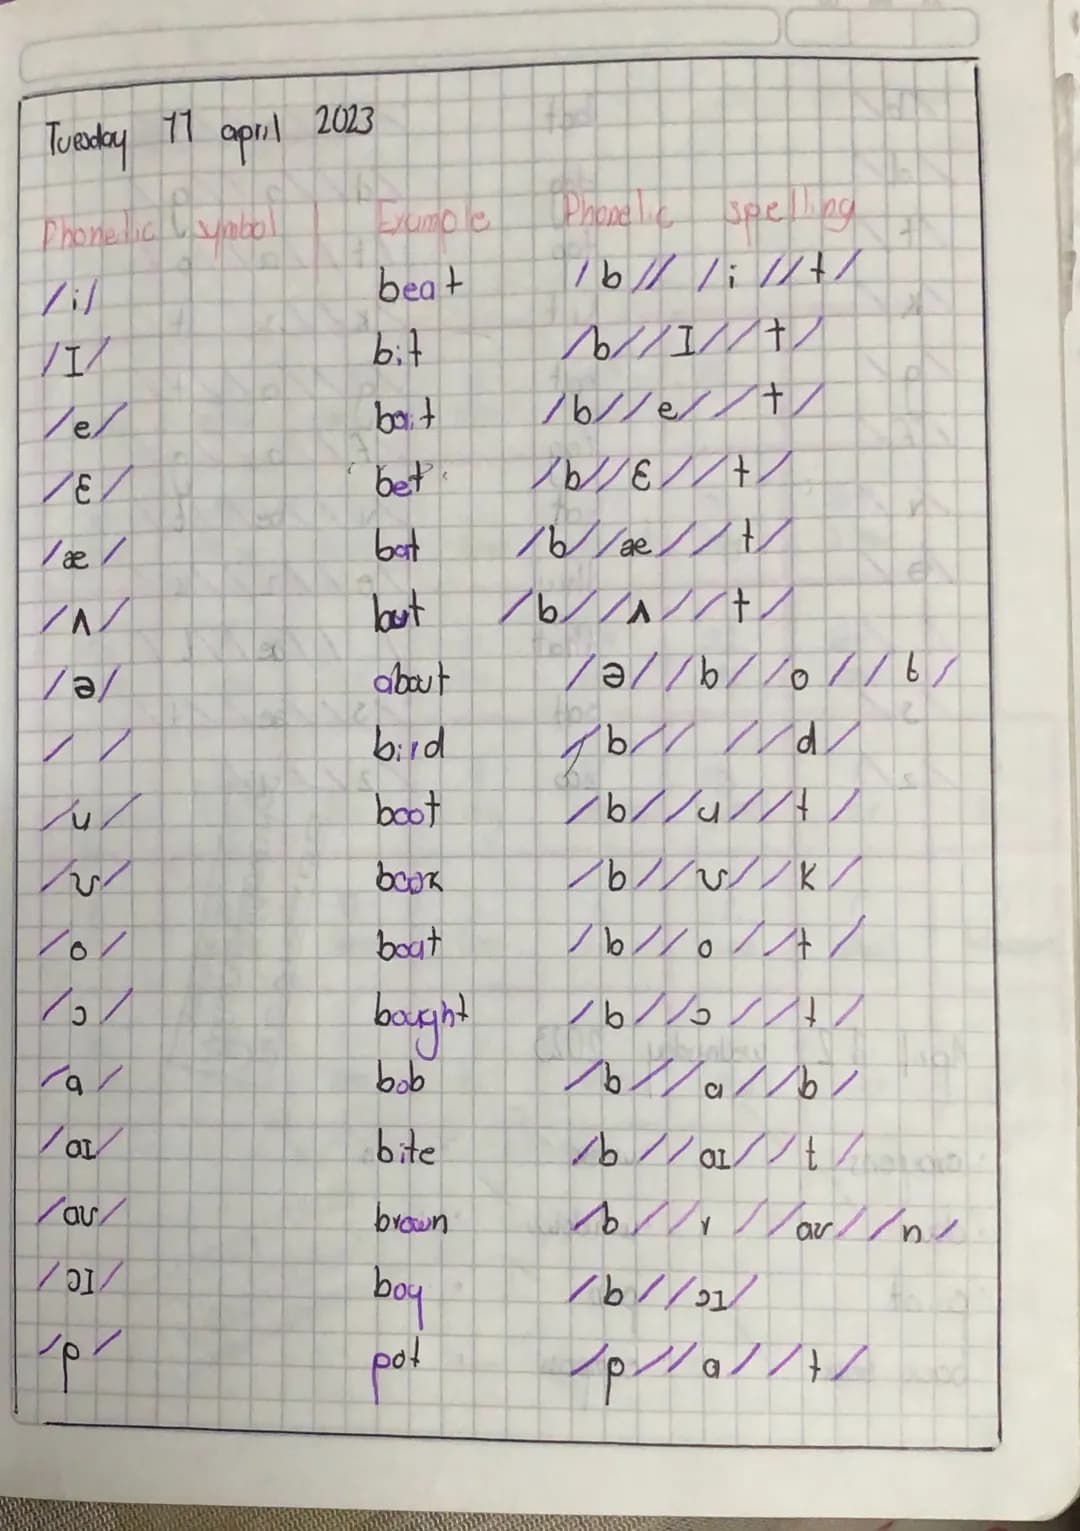 Tuesday 11 april 2023
Phonetic symbol | Example Phonetic spelling
/i/ beat /b// /i //t/
/I/ bit /b//I//t/
/e/ bait /b//e//t/
/ɛ/ bet /b//ɛ//t/
/æ/ bat /b//æ//t/
/ʌ/ but /b//ʌ//t/
/ə/ about /ə//b//o//t/
/ / bird /b// //d/
/u/ boot /b//u//t/
/ʊ/ book /b//ʊ//k/
/o/ boat /b//o//t/
/ɔ/ bought /b//ɔ//t/
/a/ bob /b//a//b/
/aI/ bite /b//aI//t/
/aʊ/ brown /b//r//aʊ//n/
/ɔI/ boy /b//ɔI/
/p/ pot /p//a//t/